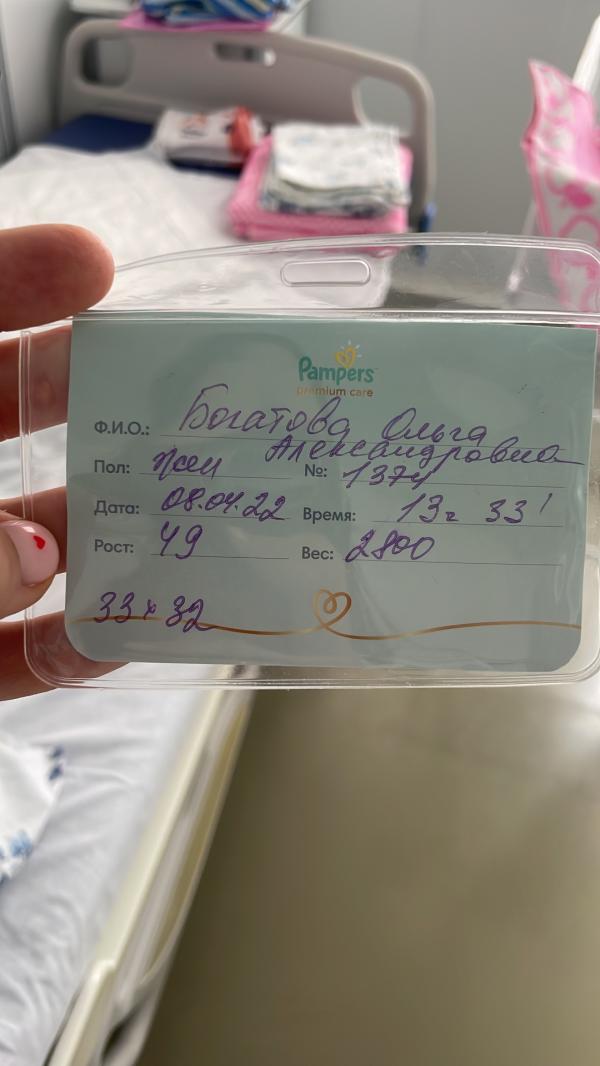 Pampers
premium care
Ф.И.О.: Богатова Ольга
Александровна
Пол: жен №: 1374
Дата: 08.04.22 Время: 13г 33'
Рост: 49 Вес: 2800
33 x 32